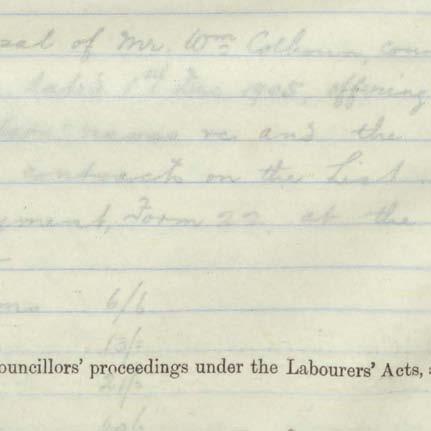 sal of Mr. Wm Colhoun, coun
dated 1st Dec 1905, offering
and the
contracts on the List
yment, Form 22, at the
6/6
13/-
ouncillors' proceedings under the Labourers' Acts, a
21/-